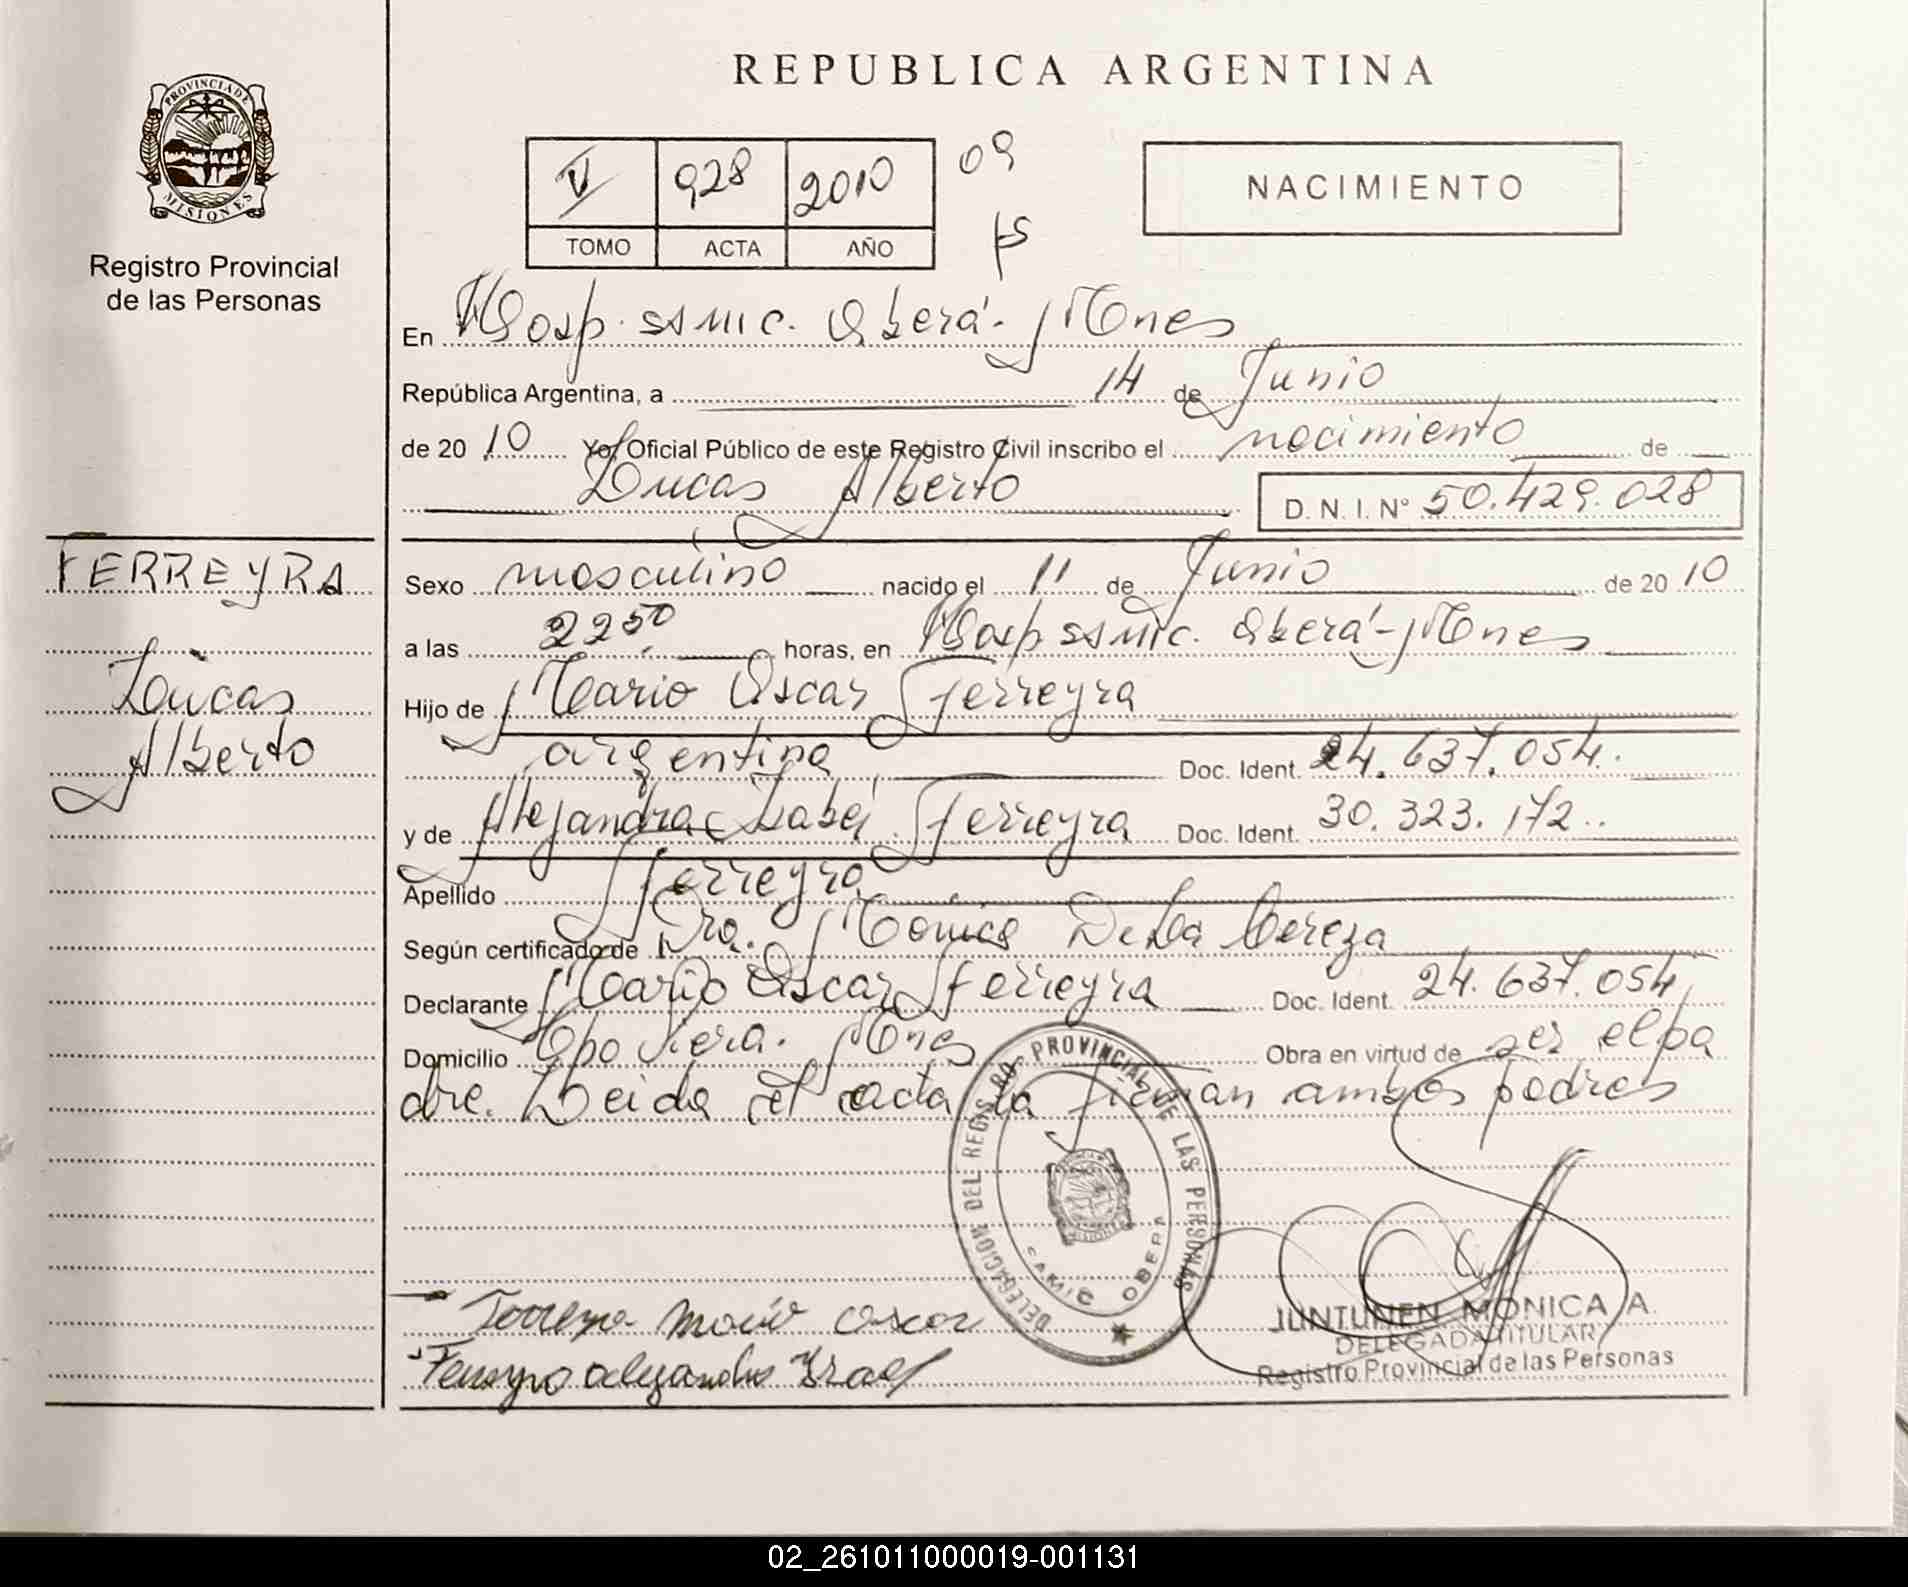 REPUBLICA ARGENTINA
PROVINCIA DE MISIONES
Registro Provincial
de las Personas
V 928 2010 09
TOMO ACTA AÑO
NACIMIENTO
En Hosp. SAMIC. Oberá - Mnes
República Argentina, a 14 de Junio
de 2010 Yo, Oficial Público de este Registro Civil inscribo el nacimiento de
Lucas Alberto D.N.I. Nº 50.429.028
FERREYRA
Lucas
Alberto
Sexo masculino nacido el 11 de Junio de 2010
a las 22 50 horas, en Hosp SAMIC. Oberá - Mnes
Hijo de Mario Oscar Ferreyra
argentina Doc. Ident. 24.637.054.
y de Alejandra Isabel Ferreyra Doc. Ident. 30.323.172..
Apellido Ferreyra
Según certificado de Dra. Monica De La Cereza
Declarante Mario Oscar Ferreyra Doc. Ident. 24.637.054
Domicilio Cpo Viera. Mnes Obra en virtud de ser el pa
dre. Leida el acta la firman ambos padres
DELEGACION DEL REGISTRO PROVINCIAL DE LAS PERSONAS
SAMIC OBERA
MISIONES
Ferreyra Mario Oscar
Ferreyra Alejandra
JUNTUNEN MONICA A.
DELEGADA TITULAR
Registro Provincial de las Personas
02_261011000019-001131